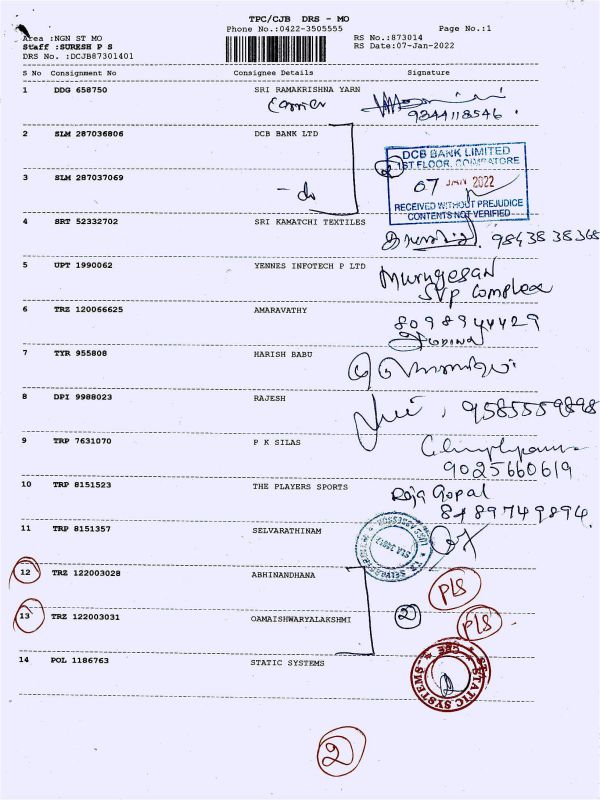 TPC/CJB DRS - MO
Phone No.:0422-3505555
Page No.:1
Area :NGN ST MO
RS No.:873014
Staff :SURESH P S
RS Date:07-Jan-2022
DRS No. :DCJB87301401
S No Consignment No Consignee Details Signature
1 DDG 658750 SRI RAMAKRISHNA YARN
9344118546
2 SLM 287036806 DCB BANK LTD
DCB BANK LIMITED
1ST FLOOR, COIMBATORE
2
07 JAN 2022
RECEIVED WITHOUT PREJUDICE
CONTENTS NOT VERIFIED
3 SLM 287037069
- do
4 SRT 52332702 SRI KAMATCHI TEXTILES
9843838368
5 UPT 1990062 YENNES INFOTECH P LTD
Murugesan
SVP Complex
6 TRZ 120066625 AMARAVATHY
8098944429
7 TYR 955808 HARISH BABU
8 DPI 9988023 RAJESH
9585559898
9 TRP 7631070 P K SILAS
9025660619
10 TRP 8151523 THE PLAYERS SPORTS
Roja Gopal
8489749894
11 TRP 8151357 SELVARATHINAM
12 TRZ 122003028 ABHINANDHANA
PLS
13 TRZ 122003031 OAMAISHWARYALAKSHMI
2
PLS
14 POL 1186763 STATIC SYSTEMS
STATIC SYSTEMS
CBE
2